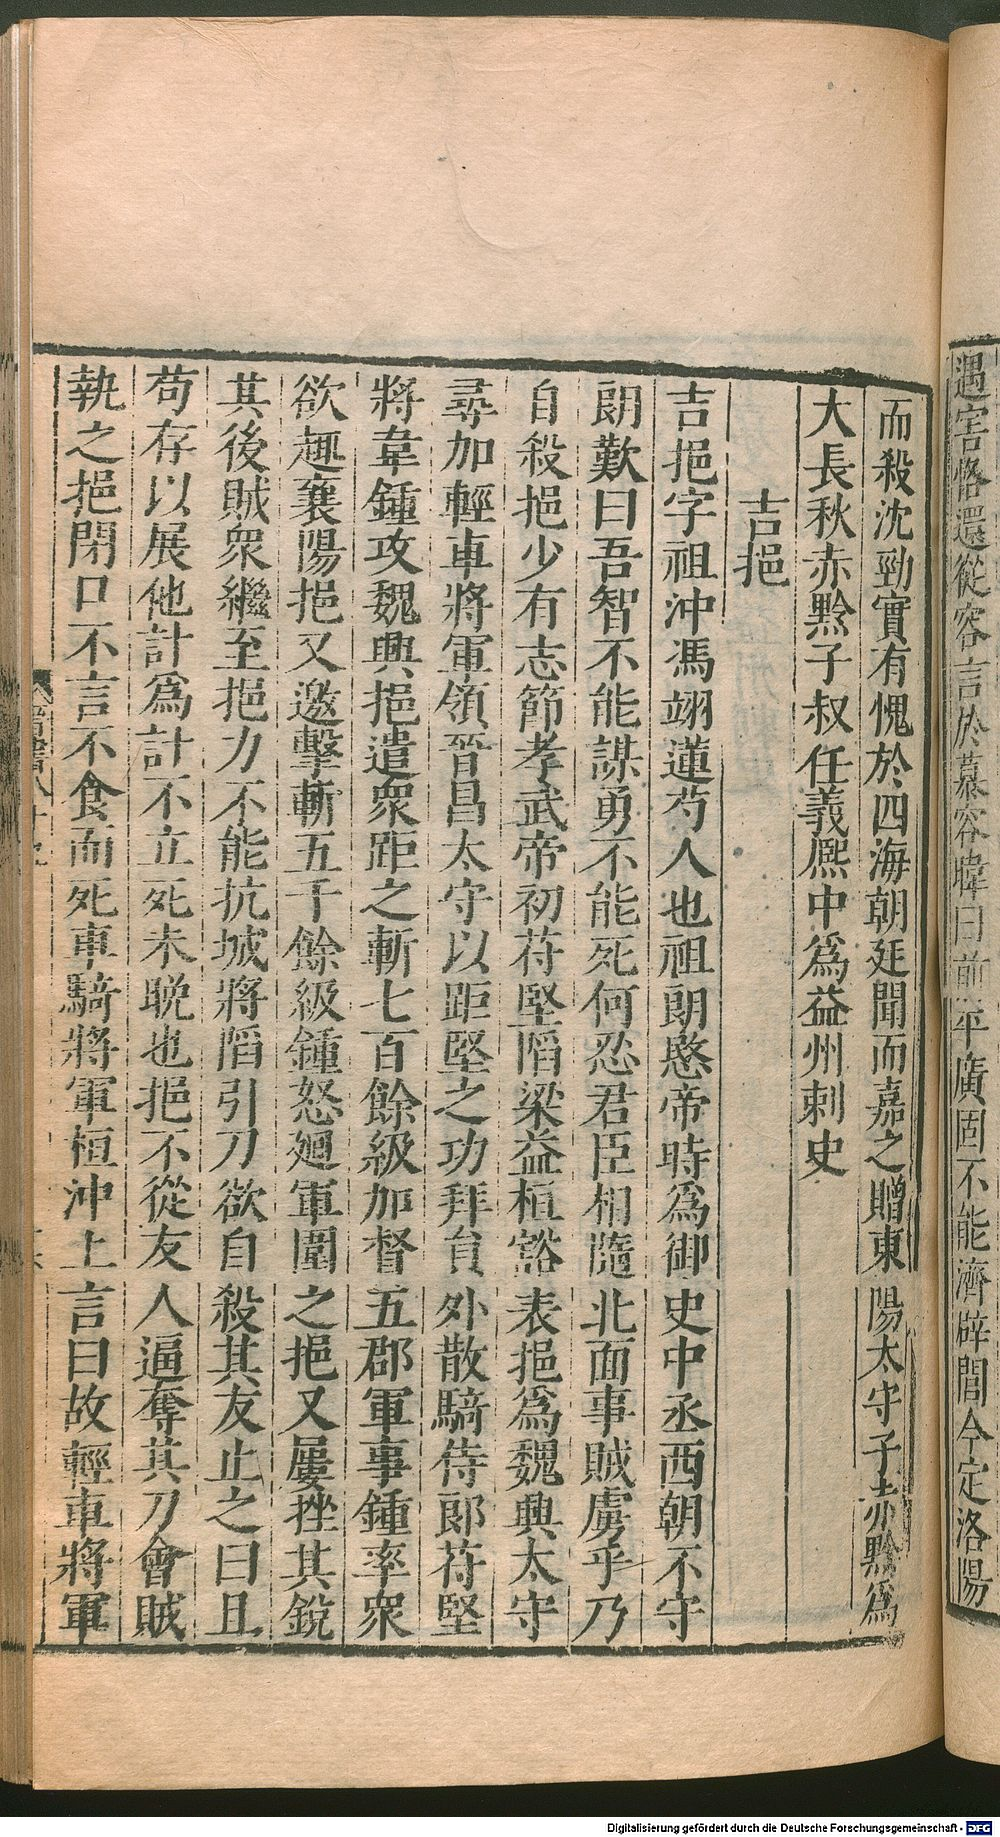 遇害恪還從容言於慕容暐曰前平廣固不能濟辟閭今定洛陽
而殺沈勁實有愧於四海朝廷聞而嘉之贈東陽太守子赤黔爲
大長秋赤黔子叔任義熈中爲益州刺史
吉挹
吉挹字祖沖馮翊蓮芍人也祖朗愍帝時爲御史中丞西朝不守
朗歎曰吾智不能謀勇不能死何忍君臣相隨北面事賊虜乎乃
自殺挹少有志節孝武帝初苻堅陷梁益桓豁表挹爲魏興太守
尋加輕車將軍領晉昌太守以距堅之功拜員外散騎侍郎苻堅
將韋鍾攻魏興挹遣衆距之斬七百餘級加督五郡軍事鍾率衆
欲趣襄陽挹又邀擊斬五千餘級鍾怒廻軍圍之挹又屢挫其銳
其後賊衆繼至挹力不能抗城將陷引刀欲自殺其友止之曰且
苟存以展他計爲計不立死未晩也挹不從友人逼奪其刀會賊
執之挹閉口不言不食而死車騎將軍桓沖上言曰故輕車將軍
Digitalisierung gefördert durch die Deutsche Forschungsgemeinschaft - DFG